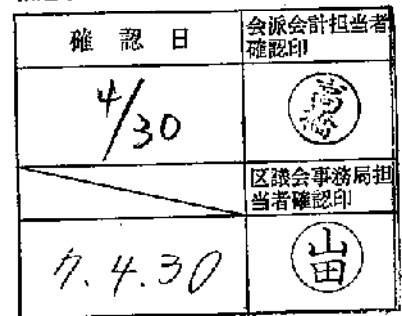 確認日
会派会計担当者
確認印
4/30
高橋
区議会事務局担
当者確認印
7.4.30
山田